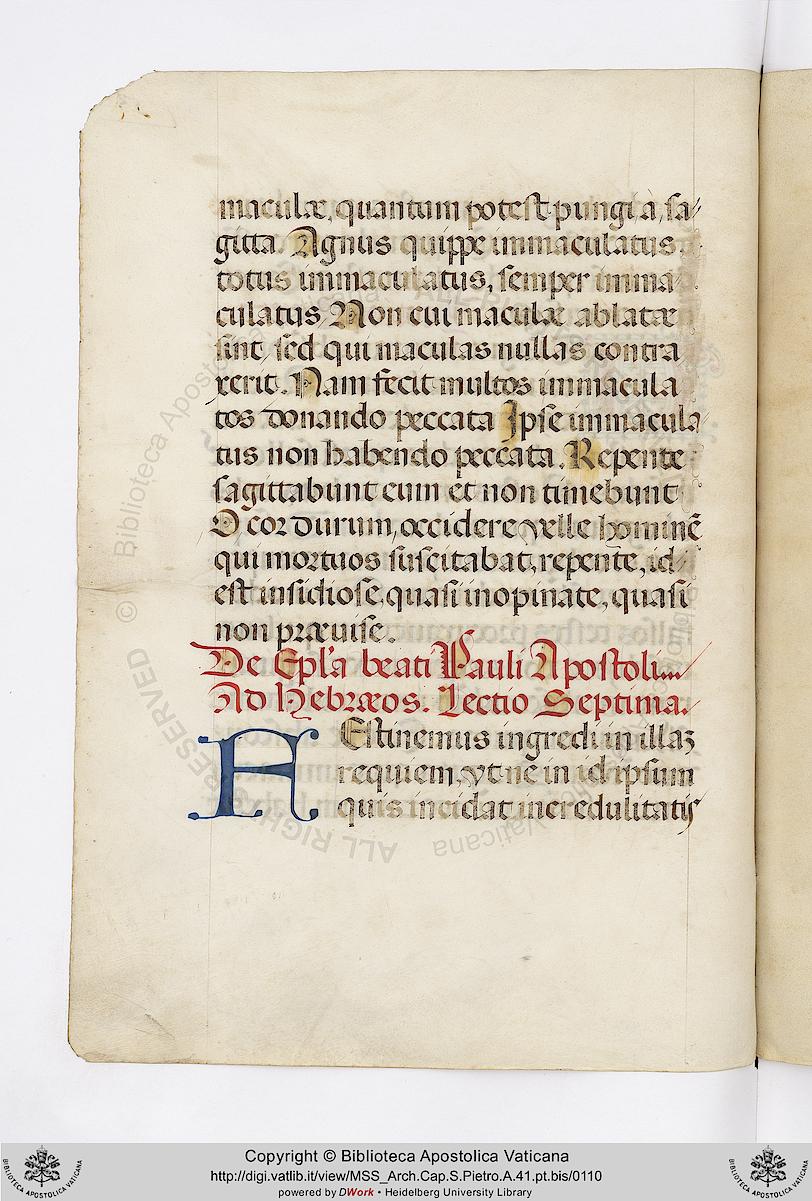 maculæ, quantum potest pungi a, sa⸗
gitta. Agnus quippe immaculatus
totus immaculatus, semper imma⸗
culatus Non cui maculæ ablatæ
sint, sed qui maculas nullas contra
xerit. Nam fecit multos immacula
tos donando peccata Ipse immacula⸗
tus non habendo peccata. Repente
sagittabunt eum et non timebunt
O cor durum, occidere velle hominē
qui mortuos suscitabat, repente, id⸗
est insidiose, quasi inopinate, quasi
non prævise.
De Epl'a beati Pauli Apostoli
Ad Hebræos. Lectio Septima.
FEstinemus ingredi in illaꝫ
requiem, vt ne in id ipsum
quis incidat incredulitatis
© Biblioteca Apostolica Vaticana ALL RIGHTS RESERVED
Copyright © Biblioteca Apostolica Vaticana
http://digi.vatlib.it/view/MSS_Arch.Cap.S.Pietro.A.41.pt.bis/0110
powered by DWork • Heidelberg University Library
BIBLIOTECA APOSTOLICA VATICANA
BIBLIOTECA APOSTOLICA VATICANA